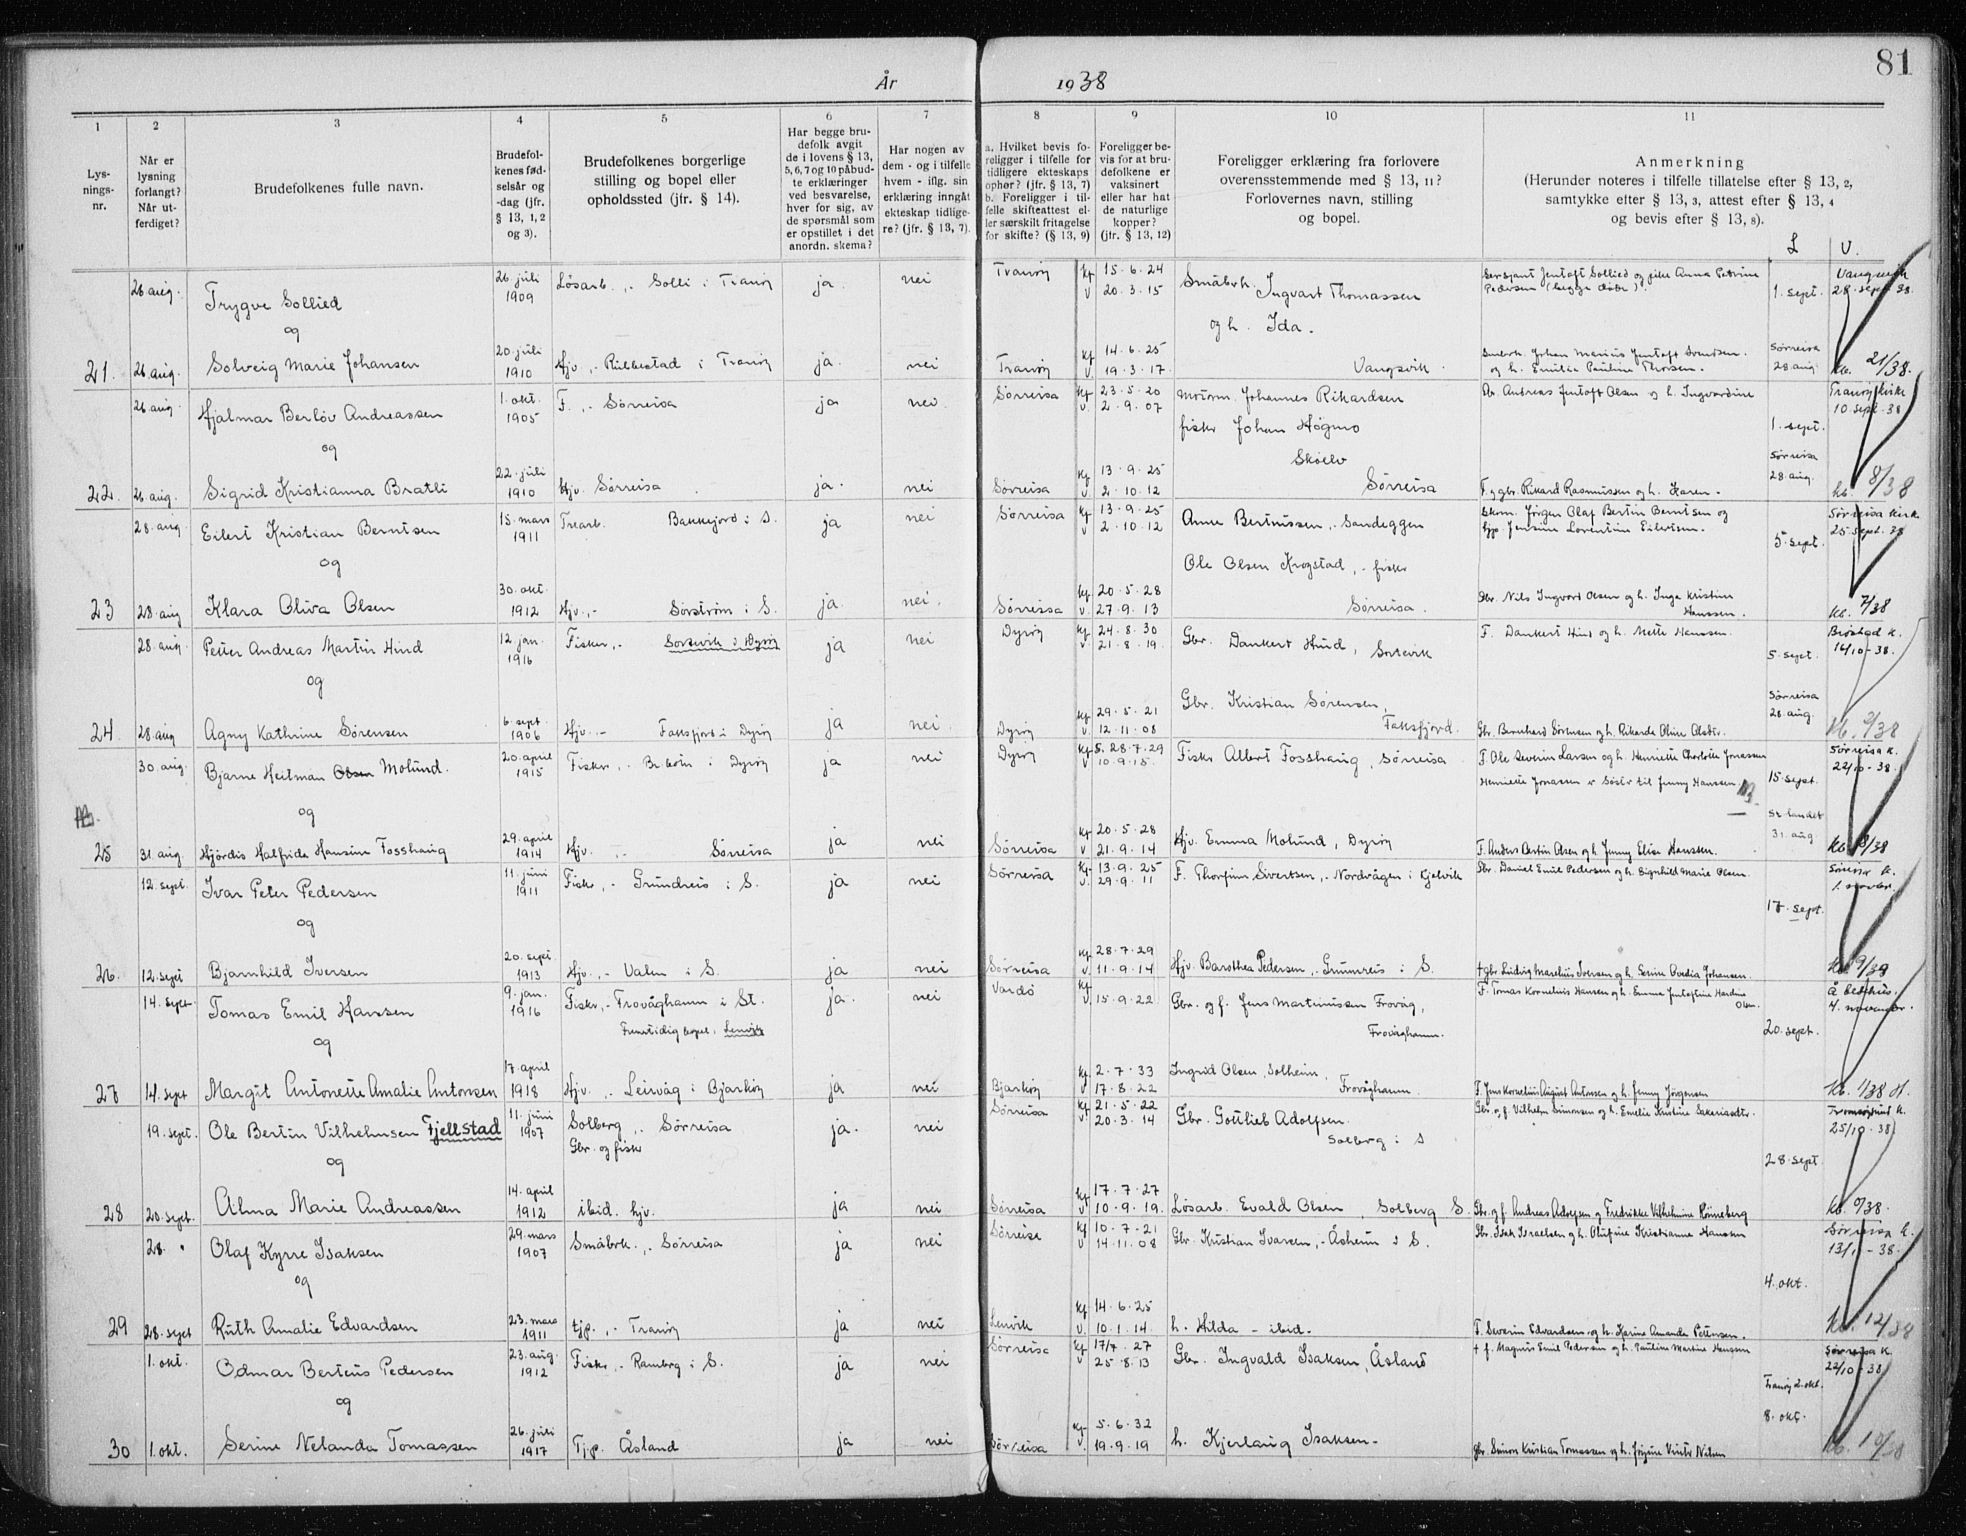 81
År 1938
1 2 3 4 5 6 7 8 9 10 11
Lys-
nings-
nr.
Når er
lysning
forlangt?
Når ut-
ferdiget?
Brudefolkenes fulle navn.
Brudefol-
kenes fød-
selsår og
-dag (jfr.
§ 13, 1, 2
og 3).
Brudefolkenes borgerlige
stilling og bopel eller
opholdssted (jfr. § 14).
Har begge bru-
defolk avgit
de i lovens § 13,
5, 6, 7 og 10 påbud-
te erklæringer
ved besvarelse,
hver for sig, av
de spørsmål som
er opstillet i det
anordn. skema?
Har nogen av
dem - og i tilfelle
hvem - iflg. sin
erklæring inngått
ekteskap tidlige-
re? (jfr. § 13, 7).
a. Hvilket bevis fo-
religger i tilfelle for
tidligere ekteskaps
ophør? (jfr. § 13, 7)
b. Foreligger i til-
felle skifteattest el-
ler særskilt fritagelse
for skifte? (§ 13, 9)
Foreligger be-
vis for at bru-
defolkene er
vaksinert
eller har hat
de naturlige
kopper?
(jfr. § 13, 12)
Foreligger erklæring fra forlovere
overensstemmende med § 13, 11?
Forlovernes navn, stilling
og bopel.
Anmerkning
(Herunder noteres i tilfelle tillatelse efter § 13, 2,
samtykke efter § 13, 3, attest efter § 13, 4
og bevis efter § 13, 8).
L V.
26 aug. Trygve Sollied 26. juli 1909 Løsarb. ,- Solli i Tranøy ja. nei Tranøy Kf 15.6.24 V 20.3.15 Småbrk. Ingvart Thomassen Sersjant Jentoft Sollied og pike Anna Petrine Pedersen (begge døde). 1. sept. Vangsvik 28. sept. 38.
og og h. Ida.
21. 26 aug. Solveig Marie Johansen 20. juli 1910 Hjv ,- Rubbestad i Tranøy ja. nei Tranøy Kf 14.6.25 V. 19.3.17. Vangsvik. Småbrk. Johan Marius Jentoft Svendsen og h. Emilie Pauline Thorsen. Sørreisa 28 aug. Kb. 21/38.
26. aug. Hjalmar Berløv Andreassen 1. okt. 1905 F. ,- Sørreisa ja nei Sørreisa Kf 23.5.20 V. 2.9.07 murm. Johannes Rikardsen Gbr. Andreas Jentoft Olsen og h. Ingvardine Tranøy kirke 10. sept. 38
og fisker Johan Høgmo Skøelv 1. sept.
22. 26 aug. Sigrid Kristianna Bratli 22. juli 1910 Hjv. Sørreisa ja. nei Sørreisa Kf 13.9.25 V. 2.10.12 Sørreisa F. y gbr. Rikard Rasmussen og h. Karen. Sørreisa 28. aug. kb. 8/38
28. aug Eilert Kristian Berntsen 15. mars 1911 Trearb. Bakkejord i S. ja nei Sørreisa Kf 13.9.25 V 2.10.12 Anne Bertnissen ,- Sandeggen Skom. Jörgen Olaf Bertin Berntsen og tjp. Jensine Lorentine Eilertsen. 5. sept. Sørreisa kirk 25. sept. 38
og Ole Olsen Krogstad ,- fisker
23 28. aug Klara Oliva Olsen 30. okt. 1912 Hjv. ,- Sørstrøm i S. ja nei. Sørreissa Kf 20.5.28 V. 27.9.13 Sørreisa. Gbr. Nils Ingvard Olsen og h. Inga Kristine Hanssen. Kb. 7/38
28. aug Petter Andreas Martin Hind 12. jan. 1916 Fisker ,- Sorsevik i Dyrøy ja nei Dyrøy Kf 24.8.30 V. 21.8.19. Gbr. Dankert Hind, Sorsevik F. Dankert Hind og h. Mette Hanssen. 5. sept. Brøstad k. 16/10-38.
og Gbr. Kristian Sørensen, Faksfjord.
24 28. aug Agny Kathrine Sørensen 6. sept. 1906 Hjv. ,- Faksfjord i Dyrøy ja nei. Dyrøy Kf 29.5.21 V. 12.11.08 Gbr. Bernhard Sørensen og h. Rikarda Oline Olsdtr. Sørreisa 28. aug. Kb. 2/38
30. aug. Bjarne Heitman Olsen Molund. 20. april 1915 Fisker ,- i Dyrøy ja nei Dyrøy Kf 5.28.7.29 V 10.9.15. Fisker Albert Fosshaug, Sørreisa F. Ole Severin Larsen og h. Henriette Charlotte Jonassen Henriette Jonassen er søster til Jenny Hanssen 15. sept. Sørreisa k. 22/10-38.
og
25 31. aug Hjördis Halfrida Hansine Fosshaug 29. april 1914 Hjv. ,- Sørreisa ja nei Sørreisa Kf 20.5.28 V 21.9.14 Hjv. Emma Molund, Dyrøy F. Anders Bertin Olsen og h. Jenny Elise Hanssen. St. landet 31. aug. Kb. 8/38
12. sept. Ivar Peter Pedersen 11. juni 1911 Fisker ,- Grundreis i S. ja nei Sørreisa Kf 13.9.25 V. 29.9.11 F. Thorfinn Sivertsen ,- Nordvågen i Kjelvik Gbr. Daniel Emil Pedersen og h. Signhild Marie Olsen. 17. sept. Sørreisa k. 1. novbr.
og
26. 12. sept Bjarnhild Iversen 20. sept. 1913 Hjv. ,- Valen i S. ja nei Sørreisa Kf 28.7.29 V. 11.9.14 Hjv. Barothea Pedersen ,- Grunnreis i S. + gbr Ludvig Marelius Iversen og h. Serine Ovedia Johansen. 9/38
14. sept. Tomas Emil Hanssen 9. jan. 1916 Fisker ,- Frovåghamn i St. Fremtidig bopel, Lenvik ja. nei Vardø Kf V 15.9.22 Gbr. og f. Jens Martinussen Frovåg, Frovåghamn. F. Tomas Kornelius Hansen og h. Emma Jentoftine Hardine Olsen. 20. sept. Å bedehus. 4. november.
og
27 14. sept Margit Antonette Amalie Antonsen 17. april 1918 Hjv. ,- Leirvåg i Bjarkøy ja nei Bjarkøy Kf 2.7.33 V 17.8.22 Ingrid Olsen, Solheim, Frovåghamn F. Jens Kornelius August Antonsen og h. Jenny Jørgensen Kb. 1/38 H.
19. sept. Ole Bertin Vilhelmsen Fjellstad 11. juni 1907 Solberg ,- Sørreisa Gbr. og fisker ja. nei Sørreisa Kf 21.5.22 V. 20.3.14 Gbr. Gottlieb Adolfsen Solberg i S Gbr. og f. Vilhelm Simonsen og h. Emelie Kristine Sakariasdtr. 28. sept. Tromsøysund k. 25/10.38
og
28 20. sept. Alma Marie Andreassen 14. april 1912 ibid. hjv. ja nei Sørreisa Kf 17.7.27 V 10.9.19. Løsarb. Evald Olsen, Solberg S. Gbr. og f. Andreas Adolfsen og Fredrikke Vilhelmine Rønneberg Kb. 9/38.
28 " Olaf Kyrre Isaksen 29. mars 1907 Småbrk. ,- Sørreisa ja nei Sørreisa Kf 10.7.21 V 14.11.08 Gbr. Kristian Ivarsen ,- Åsheim i S. Gbr. Isak Israelsen og h. Olufine Kristianne Hanssen 4. okt. Sørreisa k. 13/11-38.
og
29 28. sept Ruth Amalie Edvardsen 23. mars 1911 tjp. ,- Tranøy ja nei Lenvik Kf 14.6.25 V. 10.1.14 h. Hilda - ibid. F. Severin Edvardsen og h. Karine Amanda Pettersen. Kb. 12/38
1. okt. Odmar Berteus Pedersen 23. aug. 1912 Fisker ,- Ramberg i S. ja nei Sørreisa Kf 17/7.27 V 25.8.13 Gbr. Ingvald Isaksen, Åsland + f. Magnus Emil Pedersen og h. Pauline Martine Hanssen Tranøy 2. okt. Sørreisa k. 22/10-38
og 8. okt.
30 1. okt. Serine Nelanda Tomassen 26. juli 1917 Tjp. Åsland ja nei Sørreisa Kf 5.6.32 V. 19.9.19 h. Kjerlaug Isaksen- gbr. Simon Kristian Tomassen og h. Nilsen Kb. 10/38